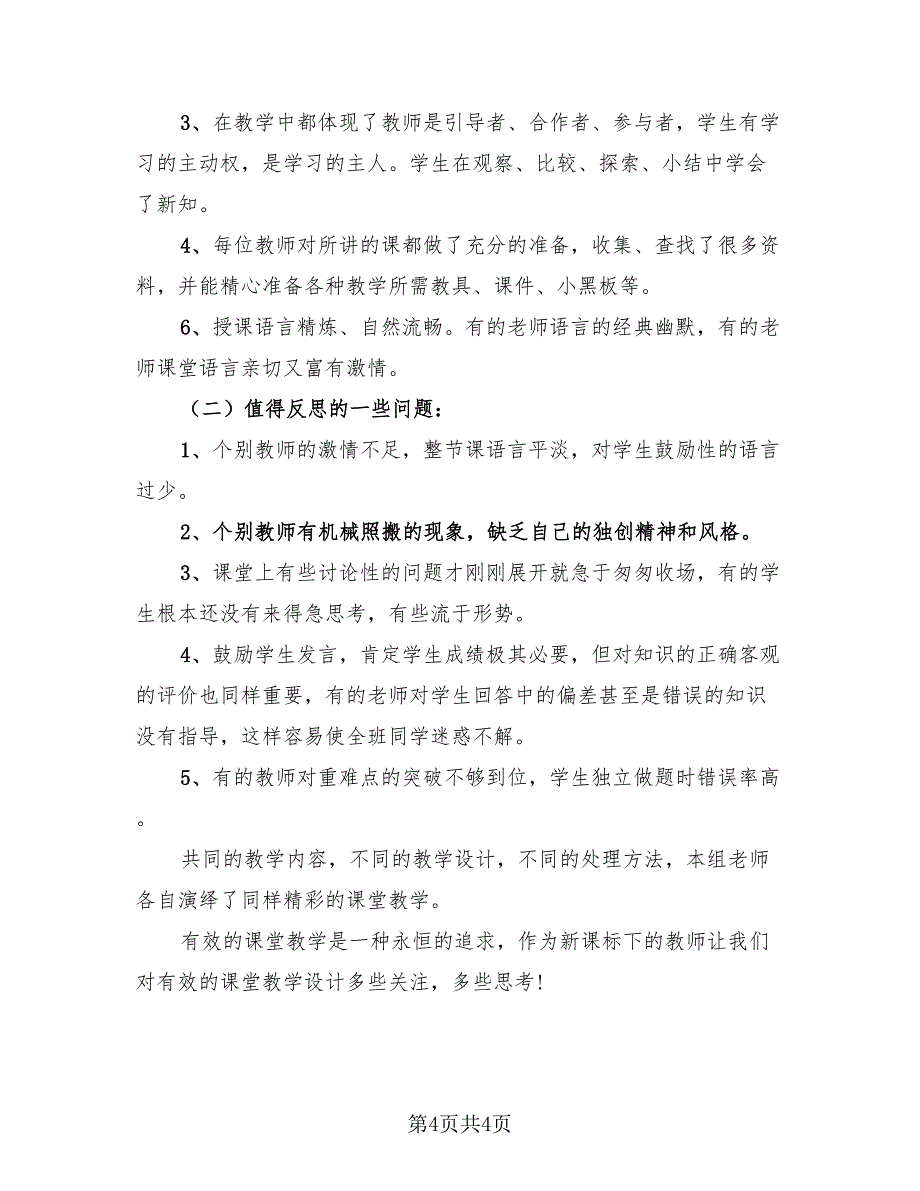 3、在教学中都体现了教师是引导者、合作者、参与者，学生有学
习的主动权，是学习的主人。学生在观察、比较、探索、小结中学会
了新知。
4、每位教师对所讲的课都做了充分的准备，收集、查找了很多资
料，并能精心准备各种教学所需教具、课件、小黑板等。
6、授课语言精炼、自然流畅。有的老师语言的经典幽默，有的老
师课堂语言亲切又富有激情。
（二）值得反思的一些问题：
1、个别教师的激情不足，整节课语言平淡，对学生鼓励性的语言
过少。
2、个别教师有机械照搬的现象，缺乏自己的独创精神和风格。
3、课堂上有些讨论性的问题才刚刚展开就急于匆匆收场，有的学
生根本还没有来得急思考，有些流于形势。
4、鼓励学生发言，肯定学生成绩极其必要，但对知识的正确客观
的评价也同样重要，有的老师对学生回答中的偏差甚至是错误的知识
没有指导，这样容易使全班同学迷惑不解。
5、有的教师对重难点的突破不够到位，学生独立做题时错误率高
。
共同的教学内容，不同的教学设计，不同的处理方法，本组老师
各自演绎了同样精彩的课堂教学。
有效的课堂教学是一种永恒的追求，作为新课标下的教师让我们
对有效的课堂教学设计多些关注，多些思考!
第4页共4页